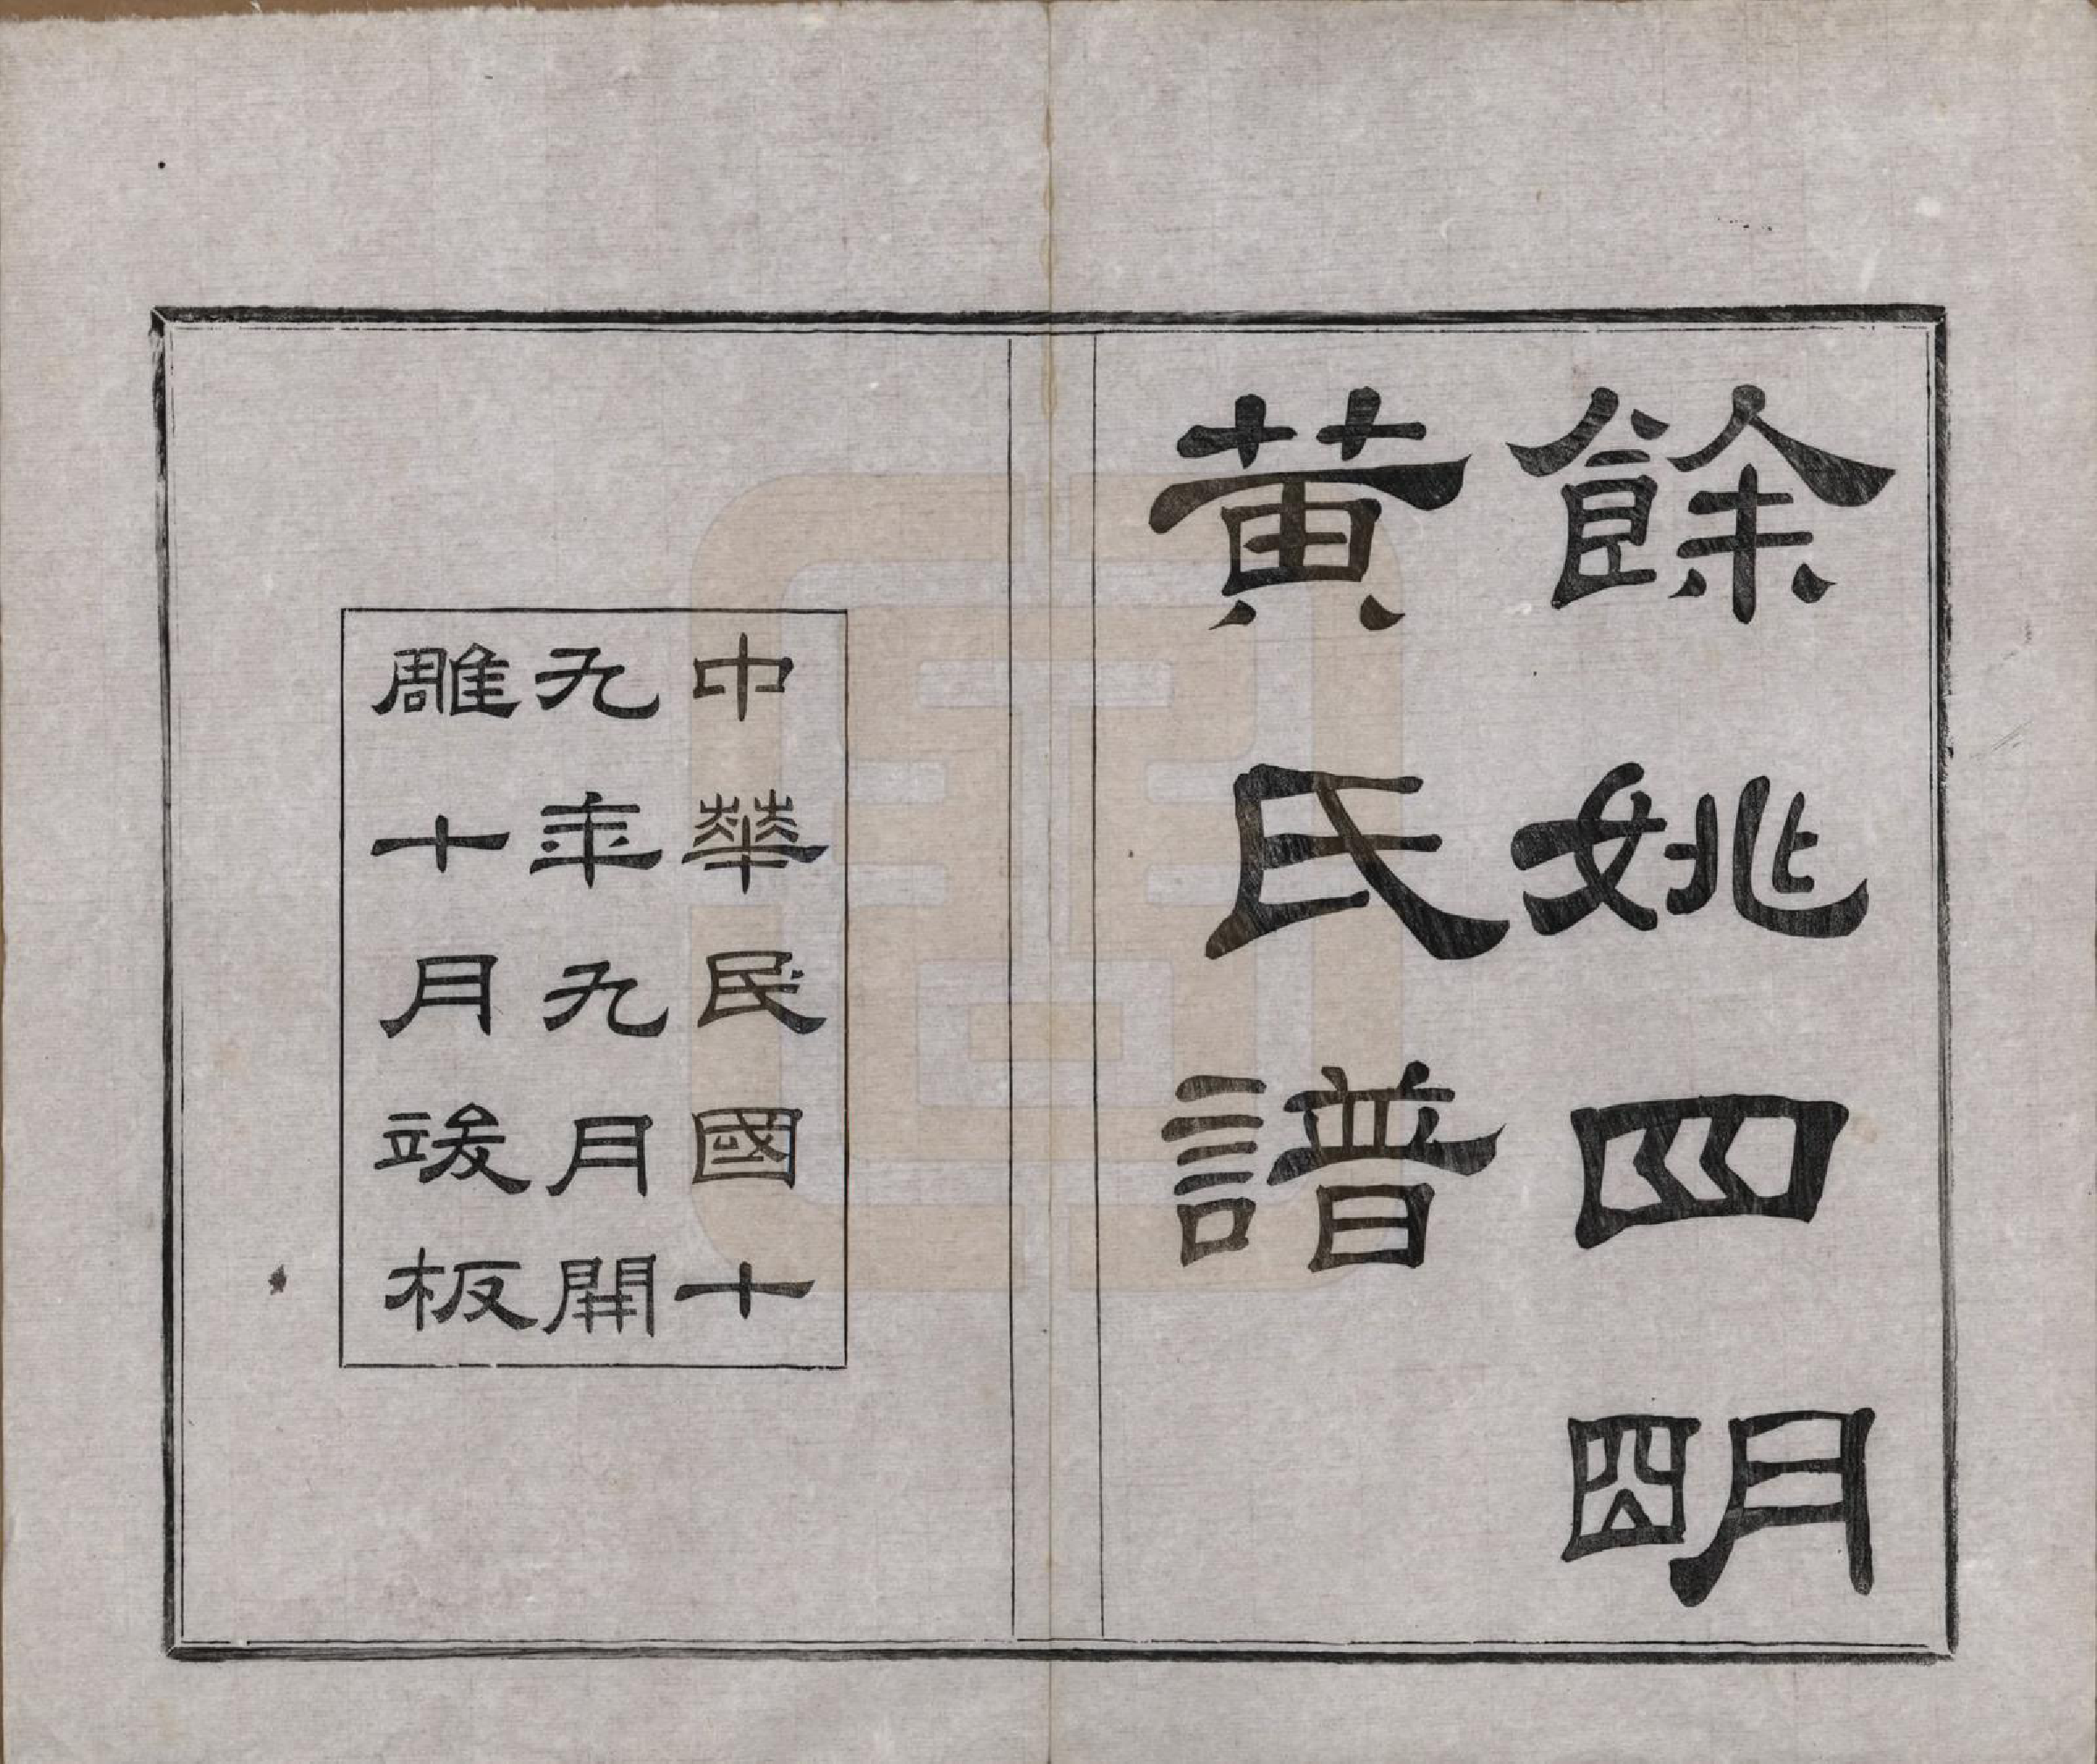 餘姚四明
黃氏譜
中華民國十
九年九月開
雕十月竣板